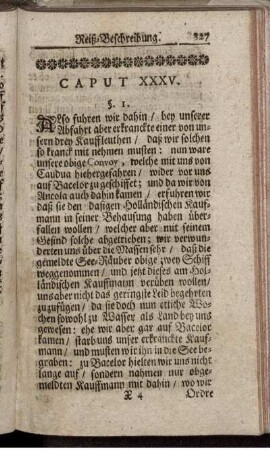 Reiß-Beschreibung. 327
CAPUT XXXV.
§. 1.
Also fuhren wir dahin / bey unserer
Abfahrt aber erkranckte einer von un-
sern drey Kauffleuthen / daß wir solchen
so kranck mit nehmen musten: nun ware
unsere obige Convoy, welche mit uns von
Caudua hiehergefahren / wider vor uns
auf Bacelor zu geschiffet; und da wir von
Ancola auch dahin kamen / erfuhren wir
daß sie den dasigen Holländischen Kauf-
mann in seiner Behausung haben über-
fallen wollen / welcher aber mit seinem
Gesind solche abgetrieben; wir verwun-
derten uns über die Massen sehr / daß die
gemeldte See-Räuber obige zwey Schiff
weggenommen / und jetzt dieses am Hol-
ländischen Kauffmann verüben wollen /
uns aber nicht das geringste Leid begehrten
zuzufügen / da sie doch nun etliche Wo-
chen sowohl zu Wasser als Land bey uns
gewesen: ehe wir aber gar auf Bacelor
kamen / starb uns unser erkranckte Kauf-
mann / und musten wir ihn in die See be-
graben: zu Bacelor hielten wir uns nicht
lange auf / sondern nahmen nur obge-
meldten Kauffmann mit dahin / wo wir
X 4 Ordre